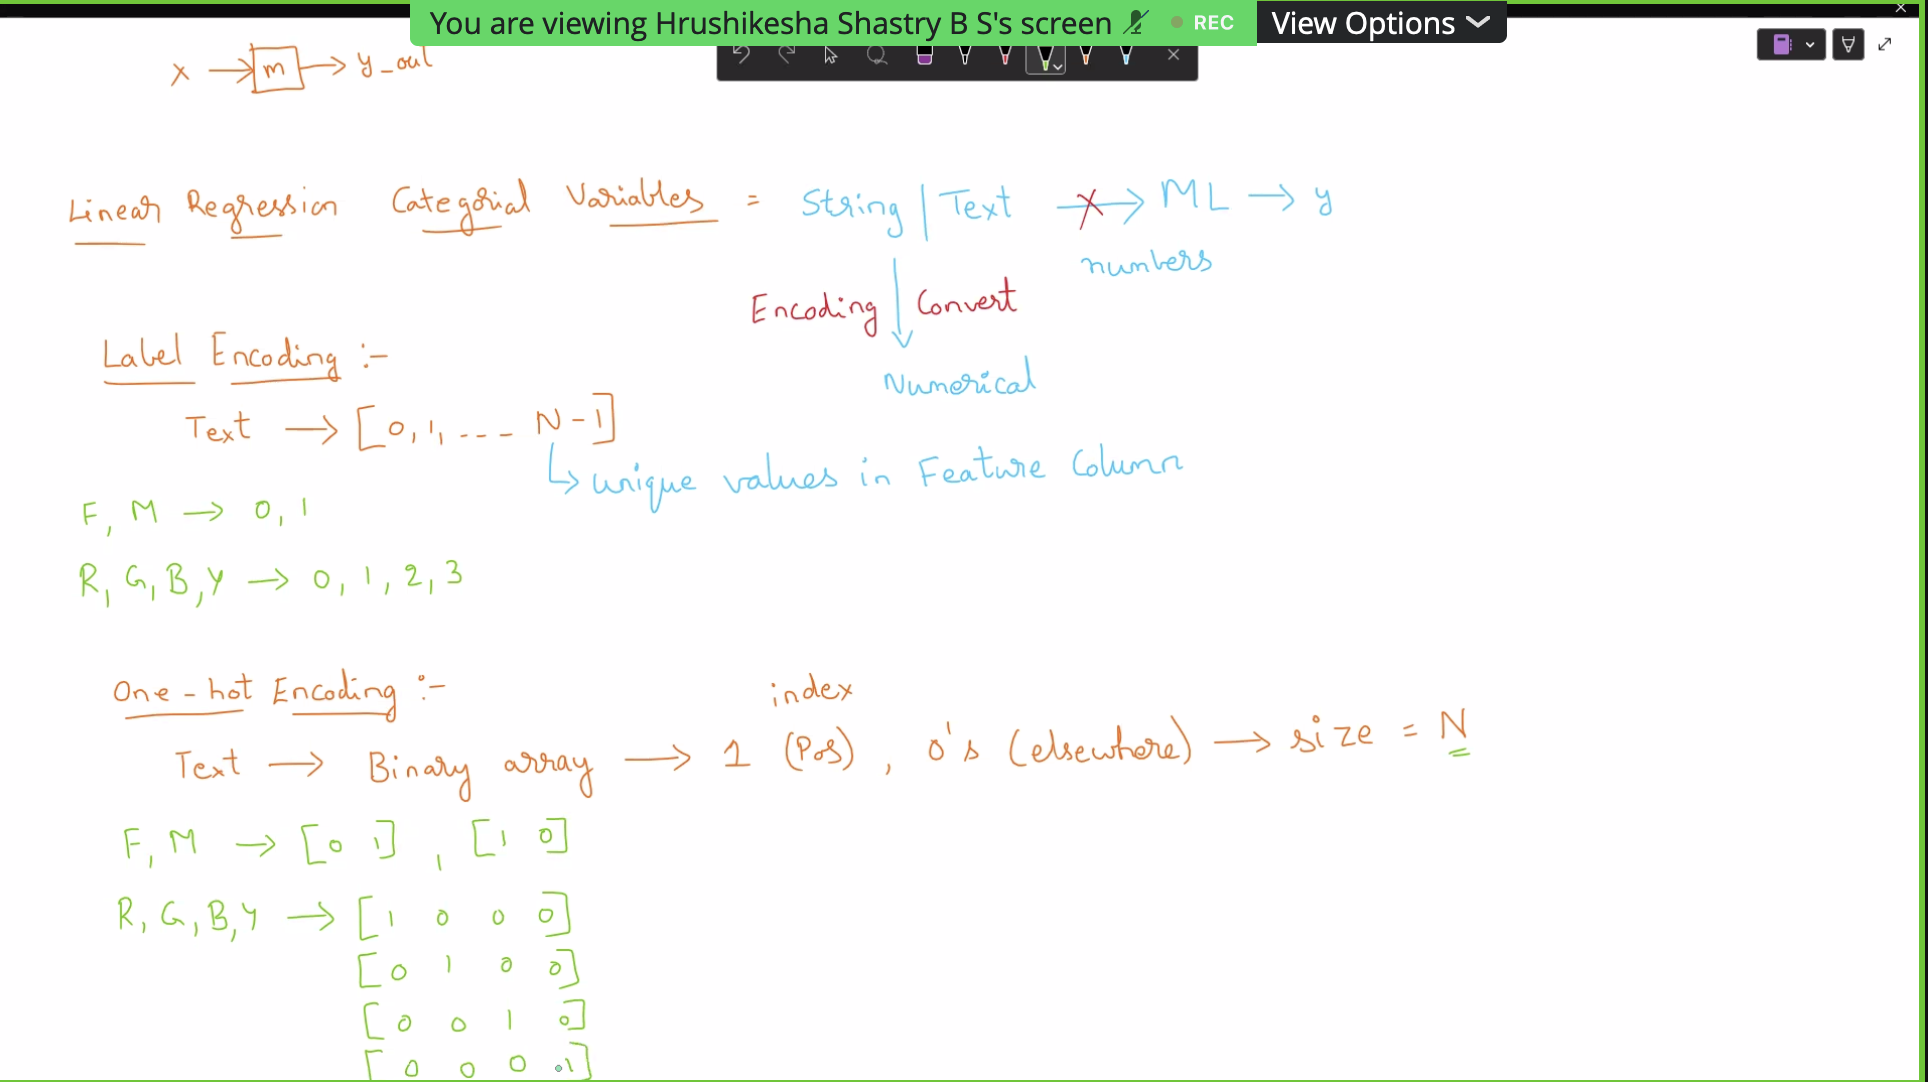 You are viewing Hrushikesha Shastry B S's screen REC View Options
x → m → y_out
Linear Regression Categorial Variables = String | Text → ML → y
numbers
Encoding Convert
Label Encoding :-
Numerical
Text → [0, 1, --- N-1]
unique values in Feature Column
F, M → 0, 1
R, G, B, Y → 0, 1, 2, 3
One-hot Encoding :-
index
Text → Binary array → 1 (Pos), 0's (elsewhere) → size = N
F, M → [0 1], [1 0]
R, G, B, Y → [1 0 0 0]
[0 1 0 0]
[0 0 1 0]
[0 0 0 1]